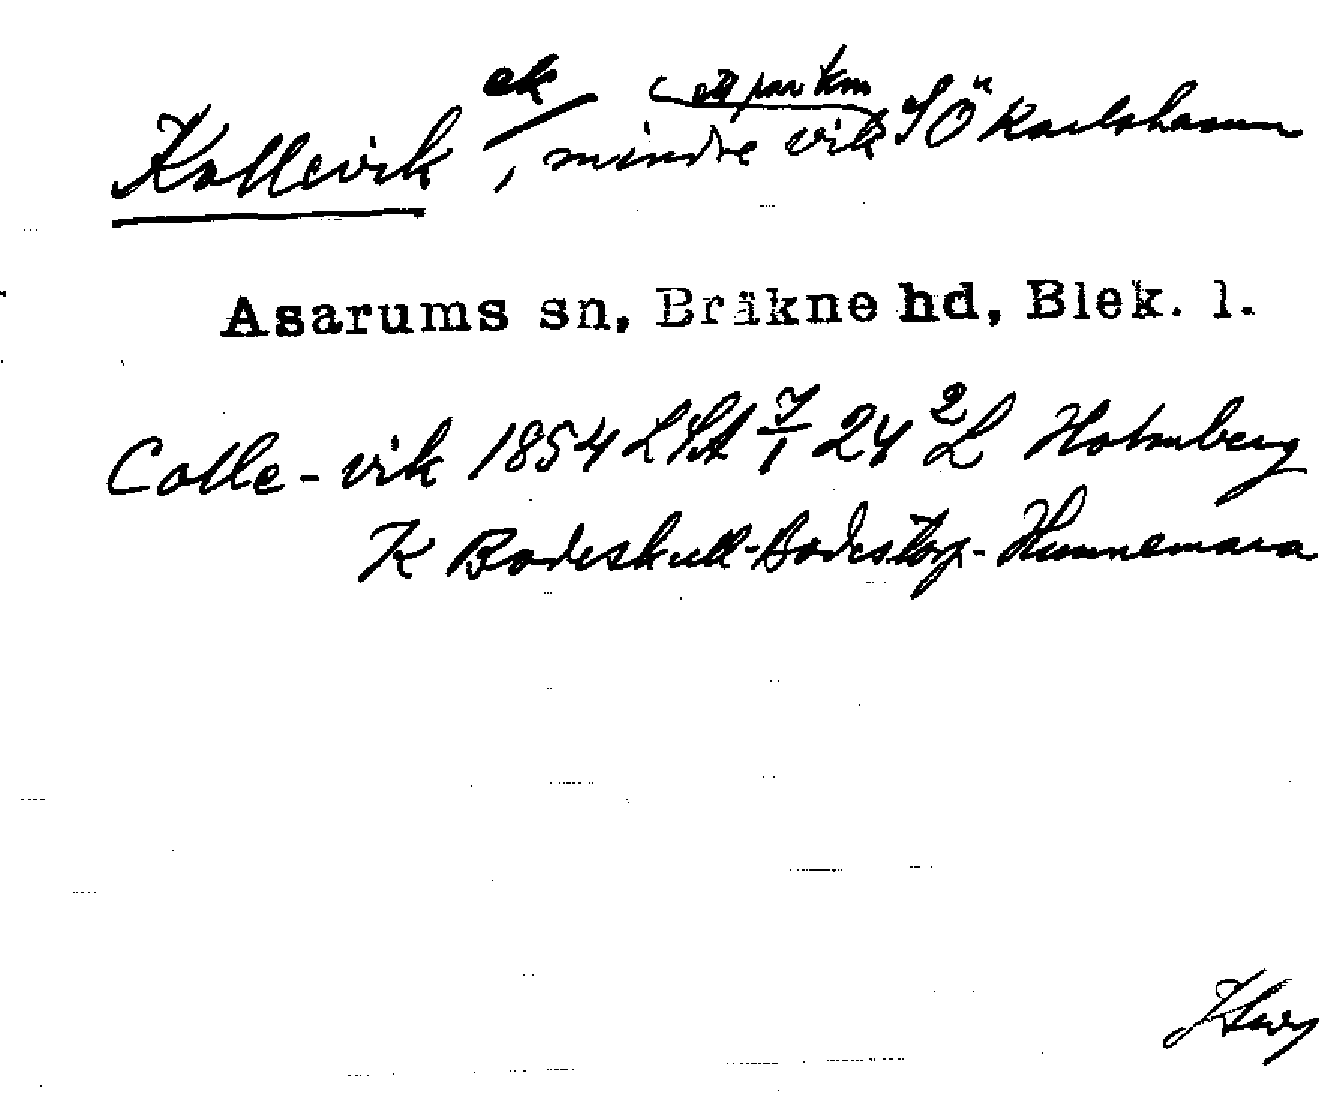 Kollevik ek, mindre vik ett par km SÖ Karlshamn
Asarums sn, Bräkne hd, Blek. l.
Colle-vik 1854 LSA 7/1 24 2L Holmberg
K Bodeskull-Bodestorp-Hunnemara